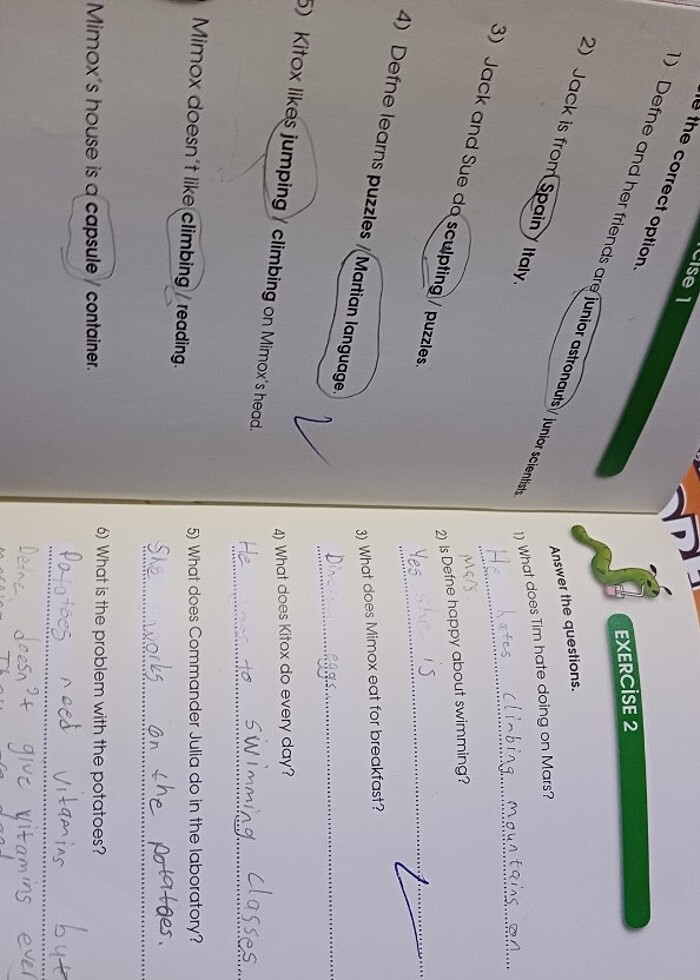 cise 1
the correct option.
1) Defne and her friends are junior astronauts / junior scientists.
2) Jack is from Spain / Italy.
3) Jack and Sue do sculpting / puzzles.
4) Defne learns puzzles / Martian language.
5) Kitox likes jumping / climbing on Mimox's head.
Mimox doesn't like climbing / reading.
Mimox's house is a capsule / container.
EXERCİSE 2
Answer the questions.
1) What does Tim hate doing on Mars?
He hates climbing mountains on
Mars.
2) Is Defne happy about swimming?
Yes she is
3) What does Mimox eat for breakfast?
eggs
4) What does Kitox do every day?
He to swimming classes
5) What does Commander Julia do in the laboratory?
She works on the potatoes.
6) What is the problem with the potatoes?
Potatoes need vitamins but
Defne doesn't give vitamins ever